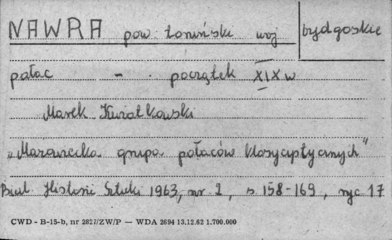 NAWRA pow. toruński woj. bydgoskie
pałac - początek XIX w
Marek Kwiatkowski
"Mazowiecka grupa pałaców klasycystycznych"
Biul. Historii Sztuki 1963, nr. 2, s 158-169, ryc. 17
CWD - B-15-b, nr 2827/ZW/P — WDA 2694 13.12.62 1.700.000